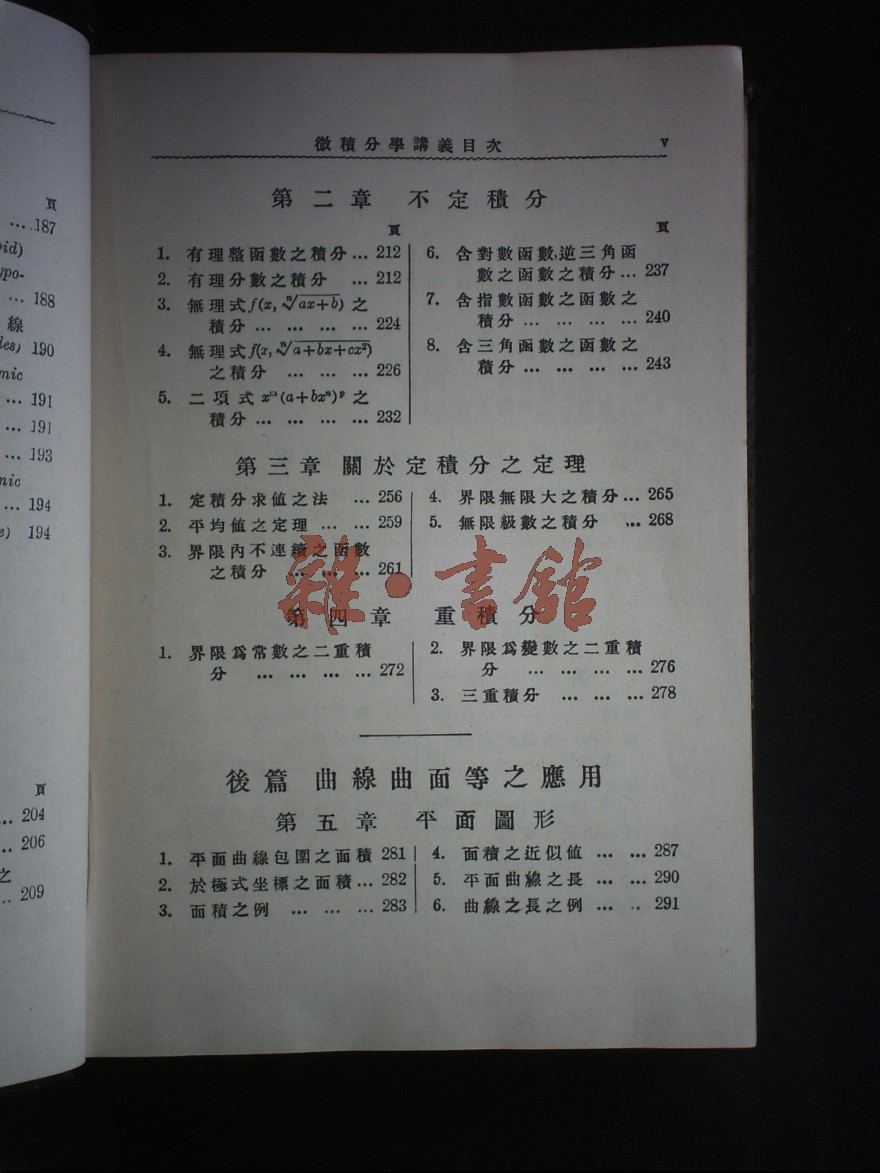 頁
187
oid)
ypo-
188
線
les) 190
mic
191
191
193
nic
194
e) 194
頁
204
206
之
209
微積分學講義目次 v
第二章 不定積分
頁
1. 有理整函數之積分 ... 212
2. 有理分數之積分 ... 212
3. 無理式 f(x, ⁿ√ax+b) 之
積分 ... ... ... ... 224
4. 無理式 f(x, ⁿ√a+bx+cx²)
之積分 ... ... ... 226
5. 二項式 xᵐ(a+bxⁿ)ᵖ 之
積分 ... ... ... ... 232
頁
6. 含對數函數,逆三角函
數之函數之積分 ... 237
7. 含指數函數之函數之
積分 ... ... ... ... 240
8. 含三角函數之函數之
積分 ... ... ... ... 243
第三章 關於定積分之定理
1. 定積分求值之法 ... 256
2. 平均值之定理 ... ... 259
3. 界限內不連續之函數
之積分 ... ... ... 261
4. 界限無限大之積分 ... 265
5. 無限級數之積分 ... 268
雜·書館
第四章 重積分
1. 界限爲常數之二重積
分 ... ... ... ... 272
2. 界限爲變數之二重積
分 ... ... ... ... 276
3. 三重積分 ... ... ... 278
後篇 曲線曲面等之應用
第五章 平面圖形
1. 平面曲線包圍之面積 281
2. 於極式坐標之面積 ... 282
3. 面積之例 ... ... ... 283
4. 面積之近似値 ... ... 287
5. 平面曲線之長 ... ... 290
6. 曲線之長之例 ... .. 291